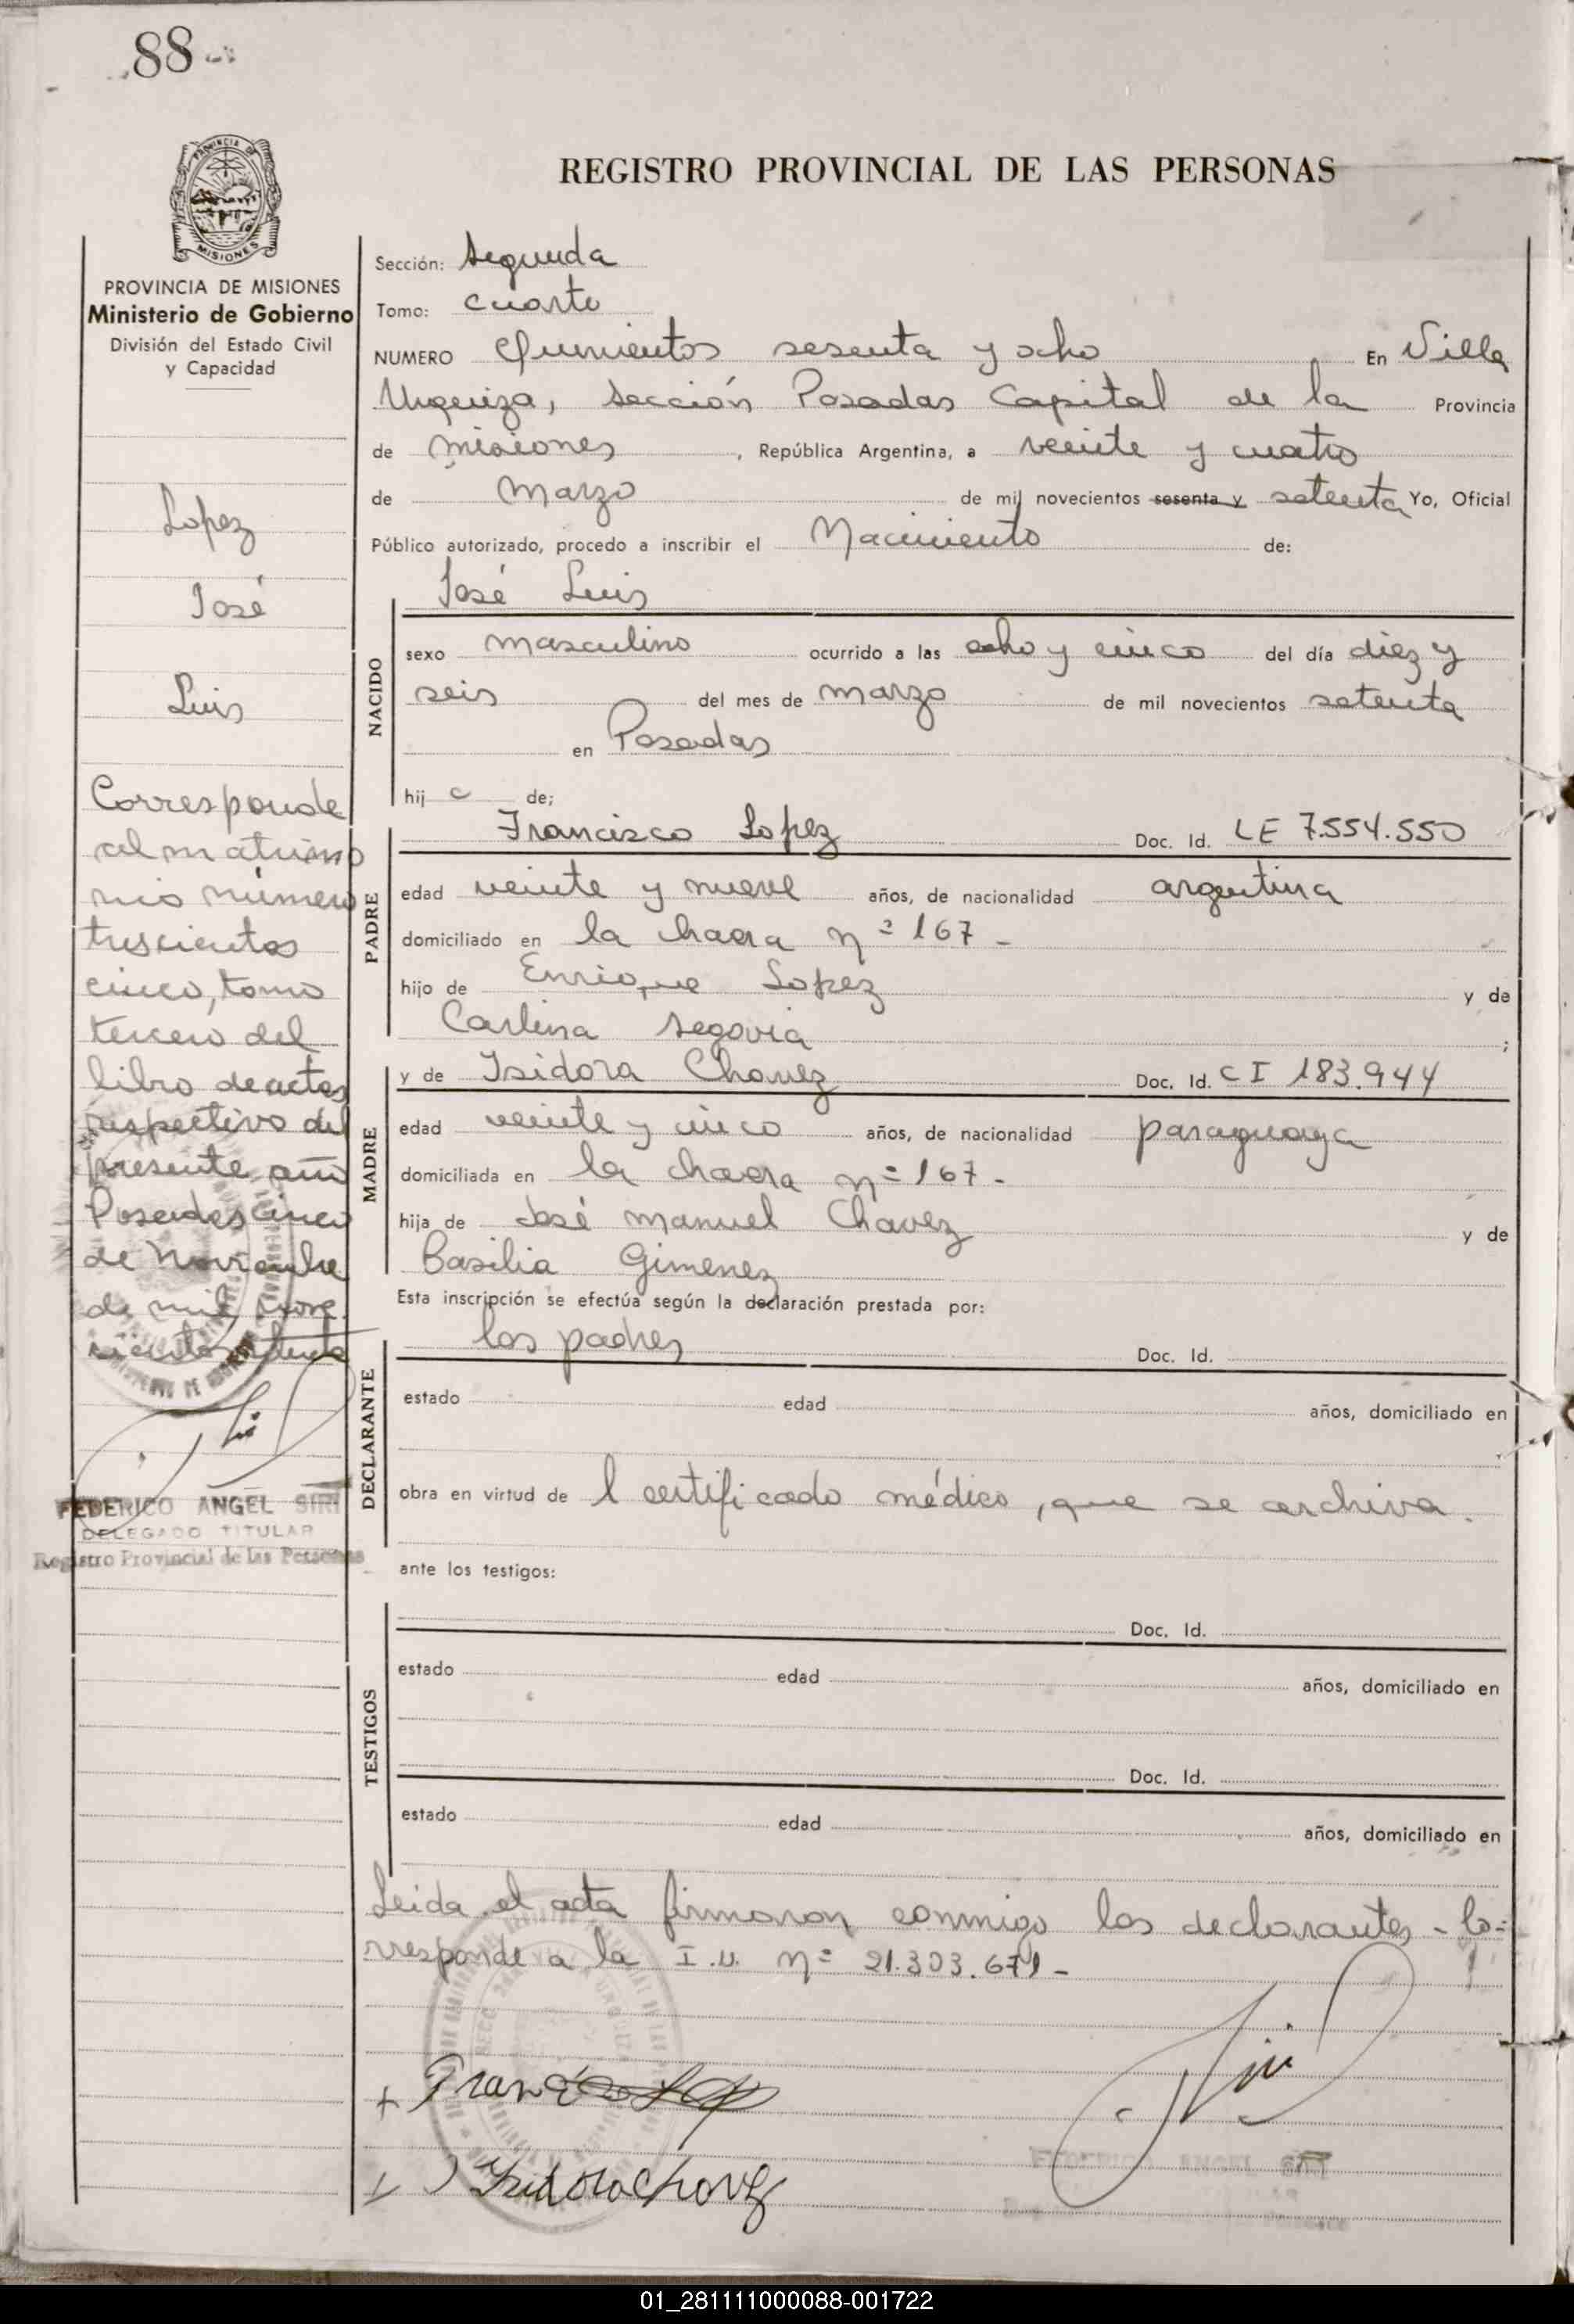 88
PROVINCIA DE
MISIONES
REGISTRO PROVINCIAL DE LAS PERSONAS
PROVINCIA DE MISIONES
Ministerio de Gobierno
División del Estado Civil
y Capacidad
Lopez
José
Luis
Corresponde
al matrimo
nio número
trescientos
cinco, tomo
tercero del
libro de actas
respectivo del
presente año
Posadas cinco
de Noviembre
de mil nove
cientos setenta
FEDERICO ANGEL SIRI
DELEGADO TITULAR
Registro Provincial de las Personas
Sección: Segunda
Tomo: cuarto
NUMERO Quinientos sesenta y ocho En Villa
Urquiza, Sección Posadas Capital de la Provincia
de Misiones, República Argentina, a veinte y cuatro
de Marzo de mil novecientos sesenta y setenta Yo, Oficial
Público autorizado, procedo a inscribir el Nacimiento de:
José Luis
NACIDO
sexo masculino ocurrido a las ocho y cinco del día diez y
seis del mes de marzo de mil novecientos setenta
en Posadas
hij o de;
PADRE
Francisco Lopez Doc. Id. LE 7.554.550
edad veinte y nueve años, de nacionalidad argentina
domiciliado en la chacra nº 167 -
hijo de Enrique Lopez y de
Carlina Segovia ;
MADRE
y de Isidora Chavez Doc. Id. C I 183.944
edad veinte y cinco años, de nacionalidad paraguaya
domiciliada en la chacra nº 167 -
hija de José Manuel Chavez y de
Basilia Gimenez
Esta inscripción se efectúa según la declaración prestada por:
DECLARANTE
los padres Doc. Id.
estado edad años, domiciliado en
obra en virtud de l certificado médico, que se archiva.
ante los testigos:
TESTIGOS
Doc. Id.
estado edad años, domiciliado en
Doc. Id.
estado edad años, domiciliado en
Leida el acta firmaron conmigo los declarantes - Co=
rresponde a la I.U. nº 21.303.671 -
Isidora Chavez
FEDERICO ANGEL SIRI
01_281111000088-001722